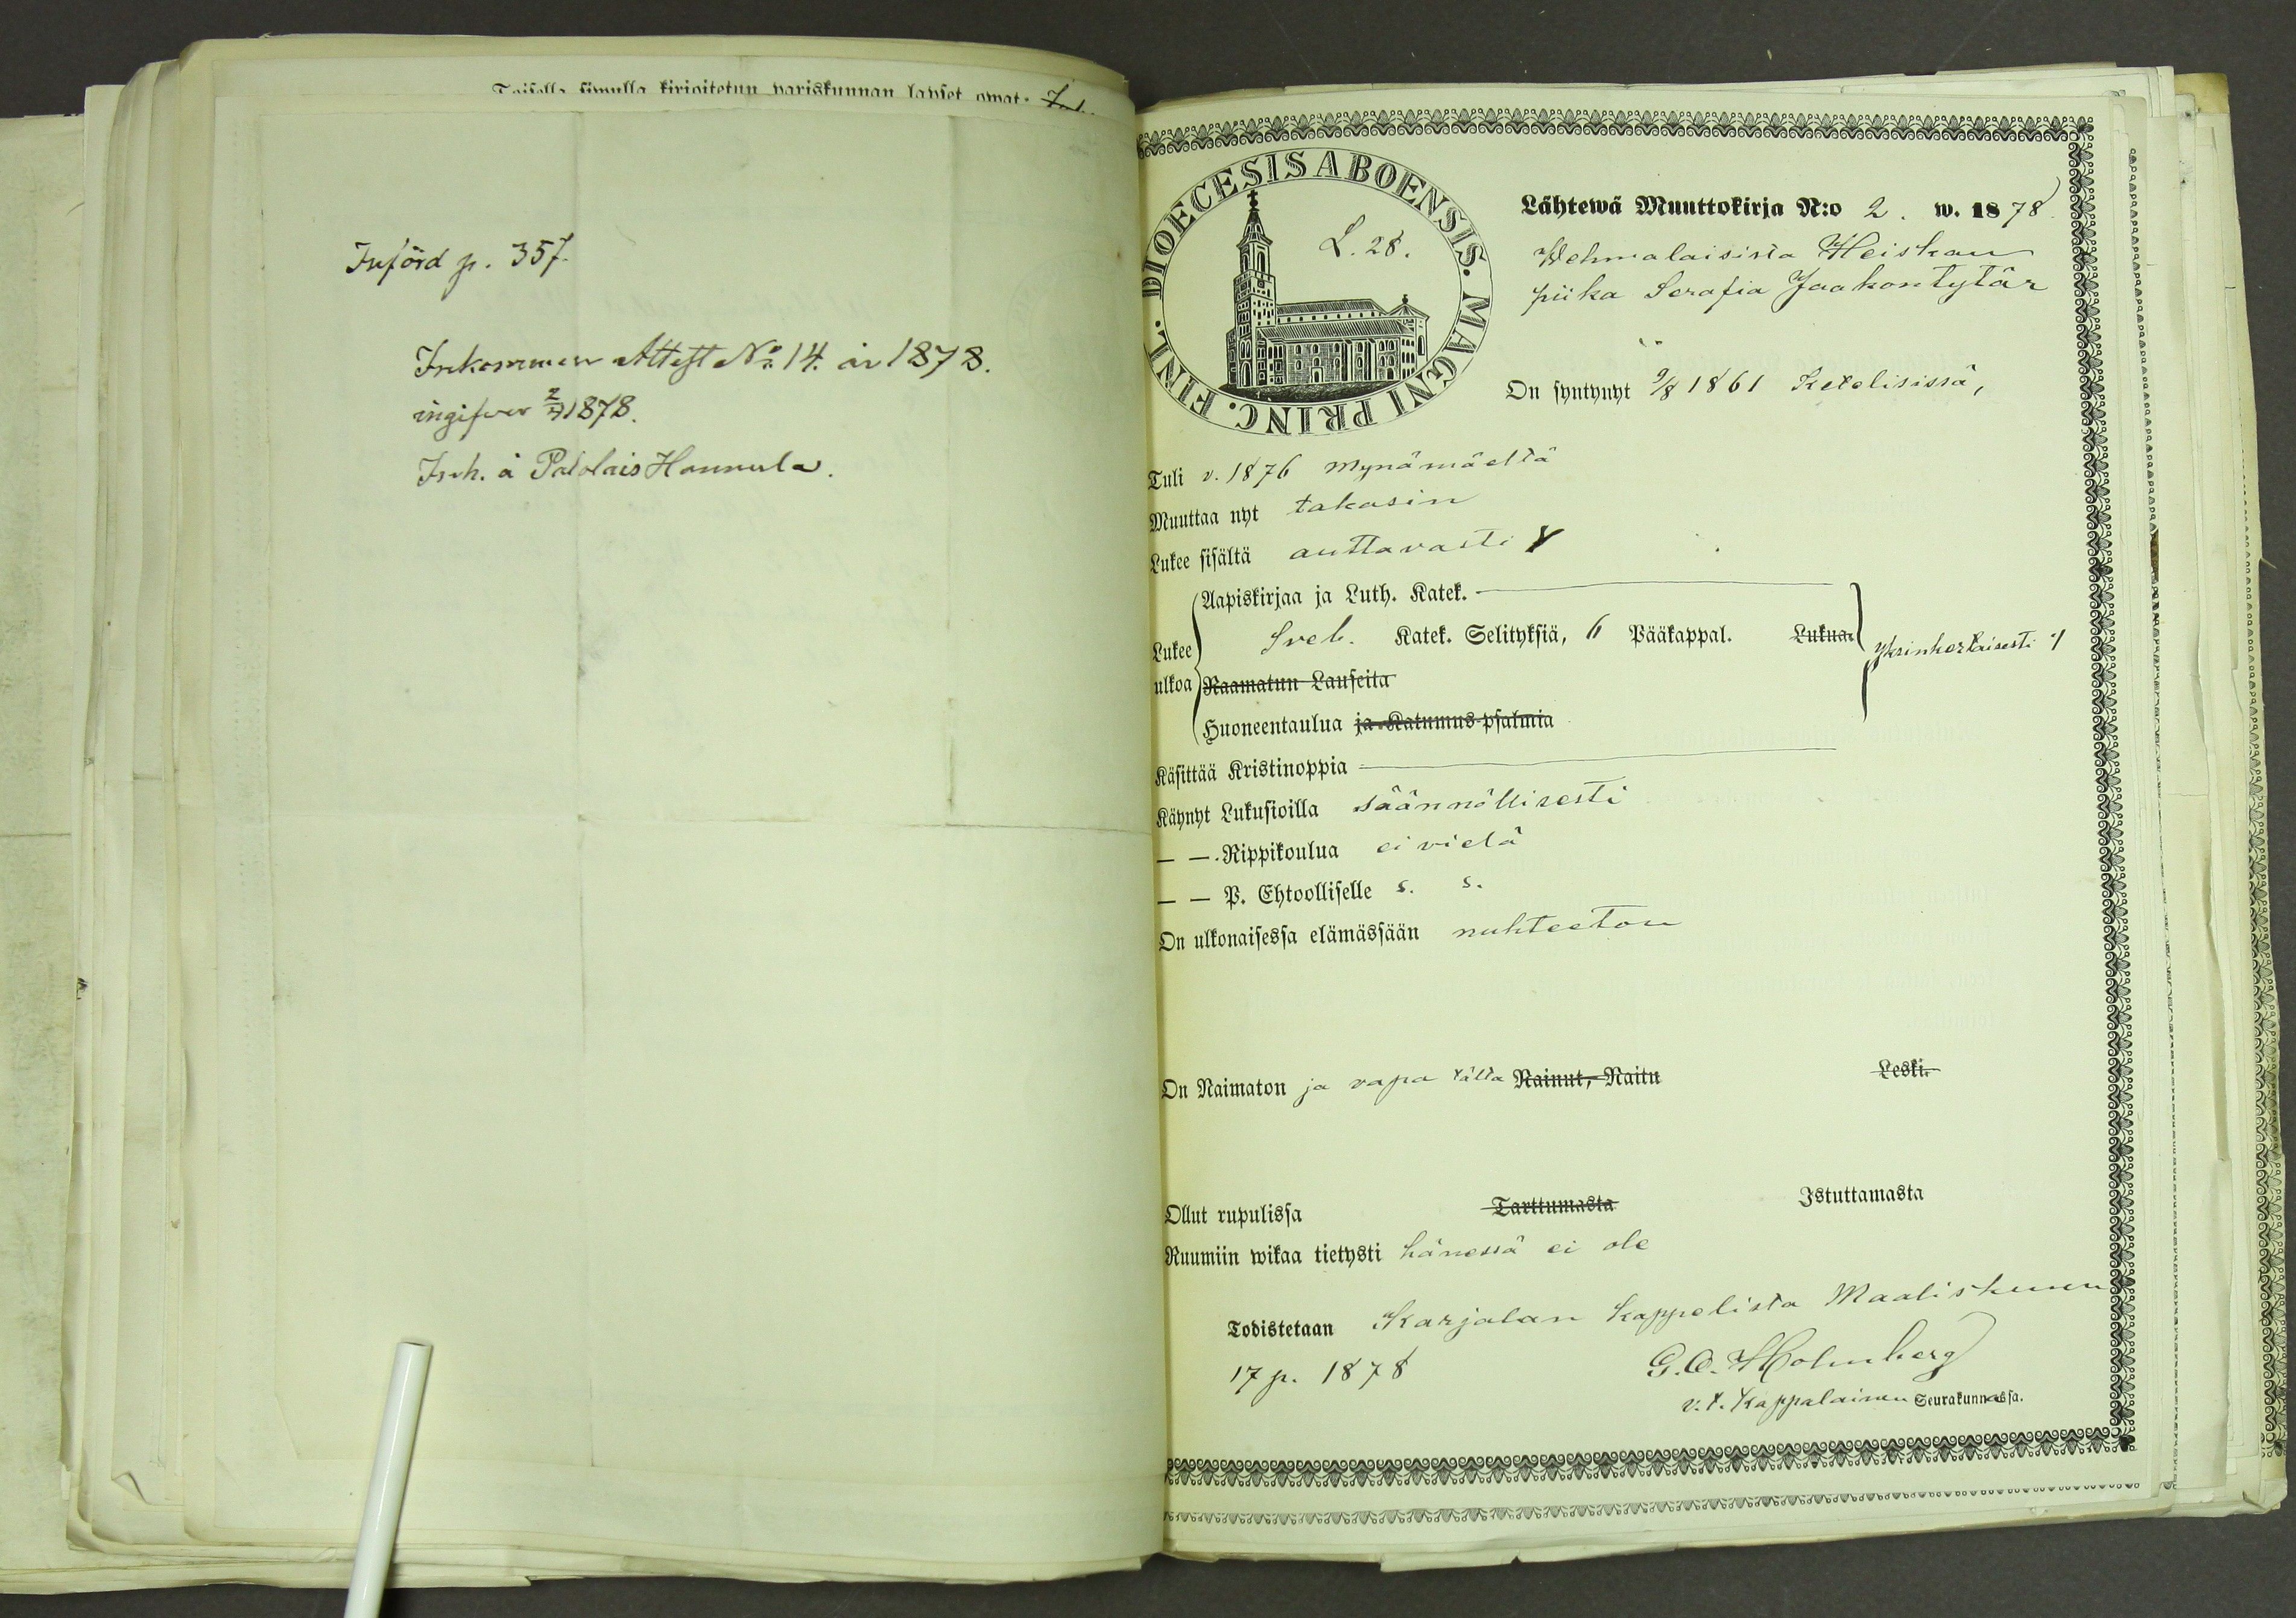 Toisella siwulla kirjoitetun pariskunnan lapset owat:
Införd p. 357.
Inkommen Attest No 14. år 1878.
ingifven 2/7 1878.
Insk. å Palolais Hannula.
DIOECESIS ABOENSIS. MAGNI PRINC. FINL.
L. 28.
Lähtewä Muuttokirja N:o 2. w. 1878.
Wehmalaisista Heiskan
piika Serafia Jaakontytär
On syntynyt 9/8 1861 Ketolisissä,
Tuli v. 1876 Mynämäeltä
Muuttaa nyt takasin
Lukee sisältä auttavasti
Lukee ulkoa
Aapiskirjaa ja Luth. Katek.
Sveb. Katek. Selityksiä, 6 Pääkappal. Lukua.
Raamatun Lauseita
Huoneentaulua ja Katumus-psalmia
yksinkertaisesti
Käsittää Kristinoppia
Käynyt Lukusioilla säännöllisesti
— — Rippikoulua ei vielä
— — P. Ehtoolliselle s. s.
On ulkonaisessa elämässään nuhteeton
On Naimaton ja vapa tältä Nainut, Naitu Leski.
Ollut rupulissa Tarttumasta Istuttamasta
Ruumiin wikaa tietysti hänessä ei ole
Todistetaan Karjalan kappelista Maaliskuun
17 p. 1878 G. O. Holmberg
v. t. Kappalainen Seurakunnassa.